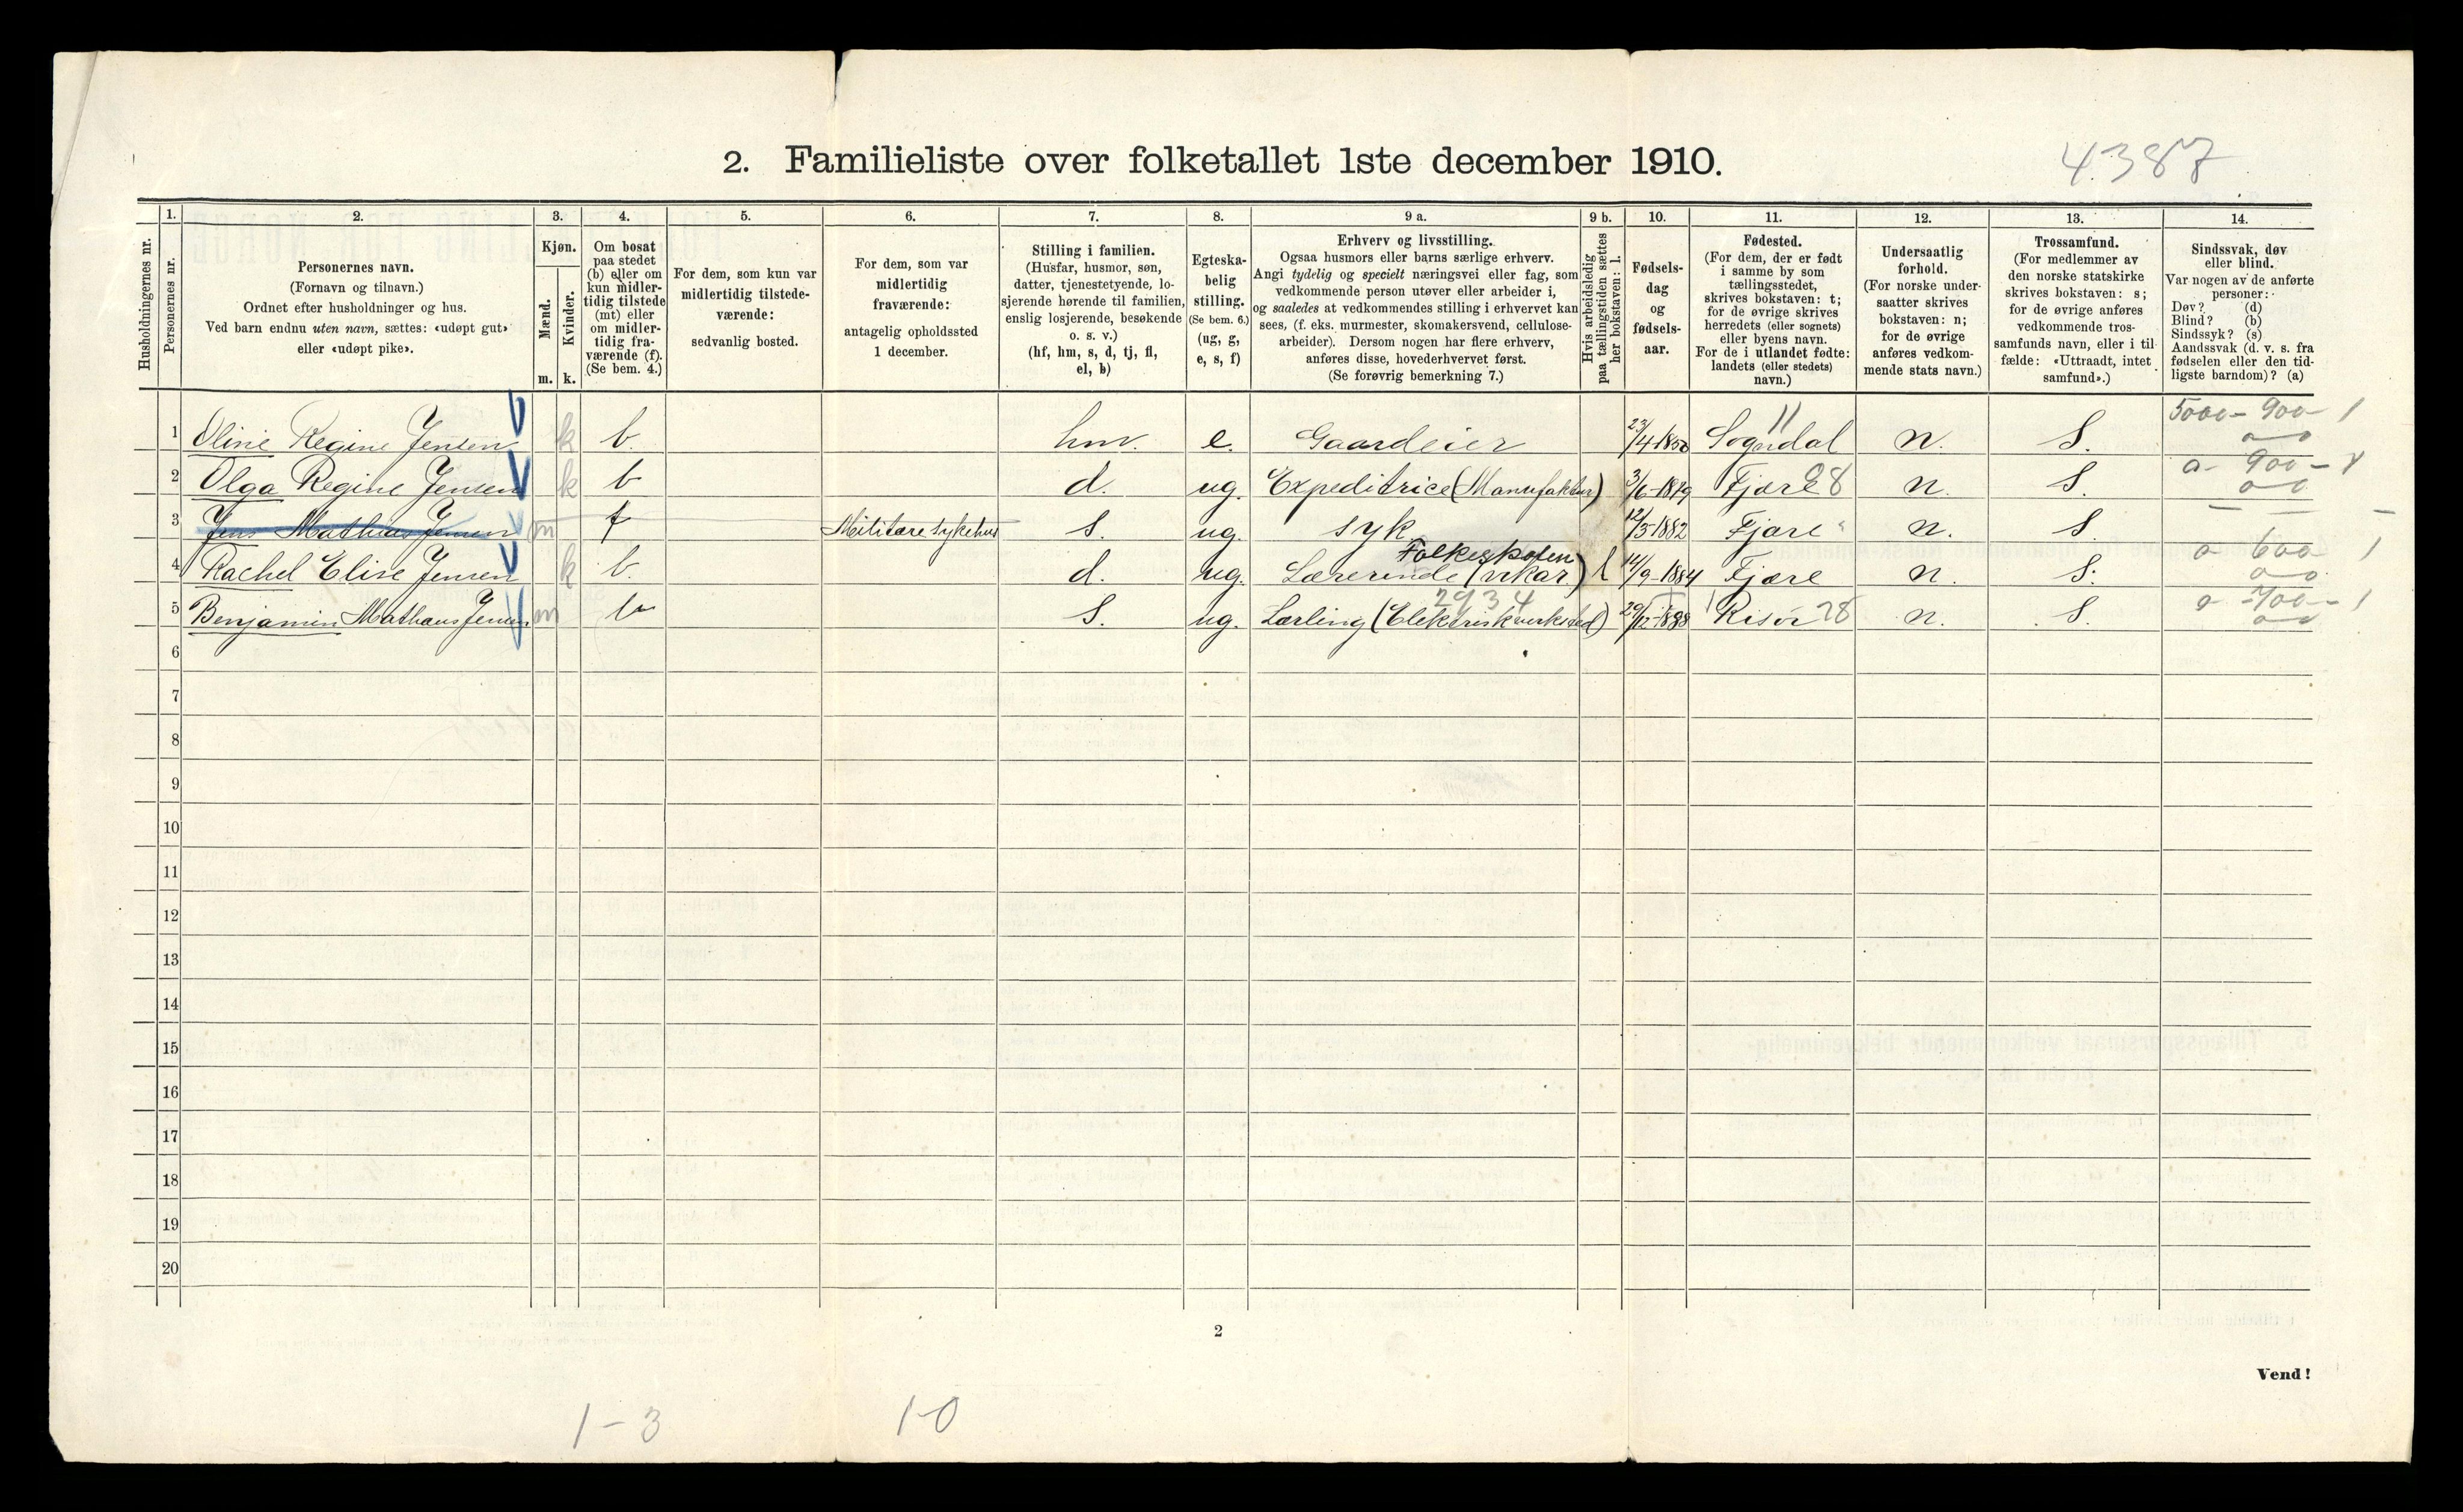 4387
2. Familieliste over folketallet 1ste december 1910.
Husholdningernes nr.
1.
Personernes nr.
2.
Personernes navn.
(Fornavn og tilnavn.)
Ordnet efter husholdninger og hus.
Ved barn endnu uten navn, sættes: «udøpt gut»
eller «udøpt pike».
3.
Kjøn.
Mænd.
Kvinder.
m. k.
4.
Om bosat
paa stedet
(b) eller om
kun midler-
tidig tilstede
(mt) eller
om midler-
tidig fra-
værende (f).
(Se bem. 4.)
5.
For dem, som kun var
midlertidig tilstede-
værende:
sedvanlig bosted.
6.
For dem, som var
midlertidig
fraværende:
antagelig opholdssted
1 december.
7.
Stilling i familien.
(Husfar, husmor, søn,
datter, tjenestetyende, lo-
sjerende hørende til familien,
enslig losjerende, besøkende
o. s. v.)
(hf, hm, s, d, tj, fl,
el, b)
8.
Egteska-
belig
stilling.
(Se bem. 6.)
(ug, g,
e, s, f)
9 a.
Erhverv og livsstilling.
Ogsaa husmors eller barns særlige erhverv.
Angi tydelig og specielt næringsvei eller fag, som
vedkommende person utøver eller arbeider i,
og saaledes at vedkommendes stilling i erhvervet kan
sees, (f. eks. murmester, skomakersvend, cellulose-
arbeider). Dersom nogen har flere erhverv,
anføres disse, hovederhvervet først.
(Se forøvrig bemerkning 7.)
9 b.
Hvis arbeidsledig
paa tællingstiden sættes
her bokstaven: l.
10.
Fødsels-
dag
og
fødsels-
aar.
11.
Fødested.
(For dem, der er født
i samme by som
tællingsstedet,
skrives bokstaven: t;
for de øvrige skrives
herredets (eller sognets)
eller byens navn.
For de i utlandet fødte:
landets (eller stedets)
navn.)
12.
Undersaatlig
forhold.
(For norske under-
saatter skrives
bokstaven: n;
for de øvrige
anføres vedkom-
mende stats navn.)
13.
Trossamfund.
(For medlemmer av
den norske statskirke
skrives bokstaven: s;
for de øvrige anføres
vedkommende tros-
samfunds navn, eller i til-
fælde: «Uttraadt, intet
samfund».)
14.
Sindssvak, døv
eller blind.
Var nogen av de anførte
personer:
Døv? (d)
Blind? (b)
Sindssyk? (s)
Aandssvak (d. v. s. fra
fødselen eller den tid-
ligste barndom)? (a)
11 5000 - 900 - 1
1 Oline Regine Jensen k b. hm. e. Gaardeier 23/4-1850 Sogndal n. S.
0 - 900 -
2 Olga Regine Jensen k b d. ug. Expeditrice (Manufaktur) 3/6-1879 Fjære 28 n. S.
3 Jens Mathias Jensen m f Militære sykehus S. ug. syk. 12/5-1882 Fjære n. S.
Folkeskolen 0 - 600 1
4 Rachel Elise Jensen k b. d. ug. Lærerinde (vikar) l 14/9-1884 Fjære n. S.
2934 0 - 700 - 1
5 Benjamin Mathæus Jensen m b S. ug. Lærling (Elektriskverksted) 29/12-1888 Risør 28 n. S.
6
7
8
9
10
11
12
13
14
15
16
17
18
19
20
2
Vend!
1 - 3 1-0